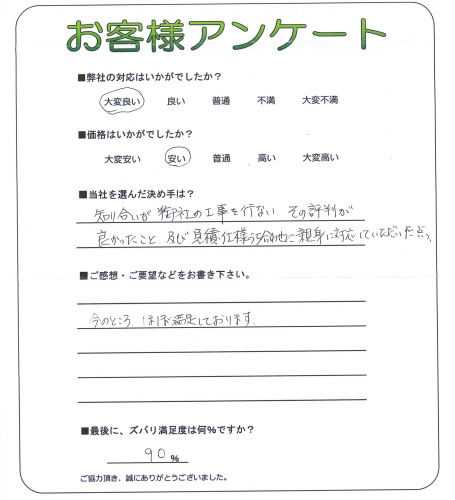 お客様アンケート
■弊社の対応はいかがでしたか？
大変良い 良い 普通 不満 大変不満
■価格はいかがでしたか？
大変安い 安い 普通 高い 大変高い
■当社を選んだ決め手は？
知り合いが御社の工事を行ない、その評判が
良かったこと、及び見積、仕様打合せ他に親身に対応していただいた点。
■ご感想・ご要望などをお書き下さい。
今のところ、ほぼ満足しております。
■最後に、ズバリ満足度は何％ですか？
90 ％
ご協力頂き、誠にありがとうございました。